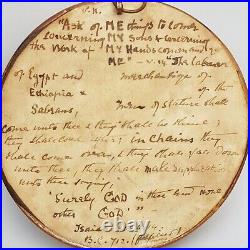 V.R.
"Ask of ME things to come
concerning MY Sons & concerning
the Work of MY Hands command ye
ME" - V. 14 "The labour
of Egypt and merchandise of
Ethiopia & the
Sabeans, Men of stature shall
come unto thee & they shall be thine;
they shall come after; in chains they
shall come over, & they shall fall down
unto thee, they shall make supplication
unto thee saying,
"Surely GOD is in thee and none
other GOD."
Isaia
B.C. 712.